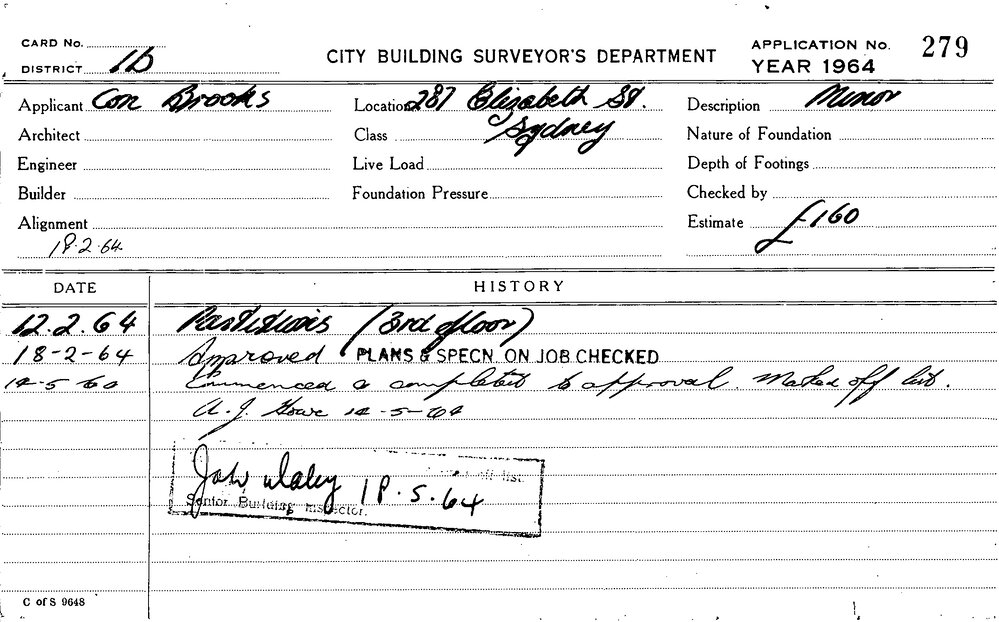 CARD No.
CITY BUILDING SURVEYOR'S DEPARTMENT
APPLICATION No. 279
DISTRICT 1b
YEAR 1964
Applicant Con Brooks
Location 287 Elizabeth St.
Description Minor
Architect
Class Sydney
Nature of Foundation
Engineer
Live Load
Depth of Footings
Builder
Foundation Pressure
Checked by
Alignment
Estimate £160
18.2.64
DATE HISTORY
12.2.64 Partitions (3rd floor)
18-2-64 Approved PLANS & SPECN ON JOB CHECKED
14-5-64 Commenced & completed to approval. Marked off list.
A.J. 14-5-64
off list.
John Daley 18.5.64
Senior Building Inspector.
C of S 9648